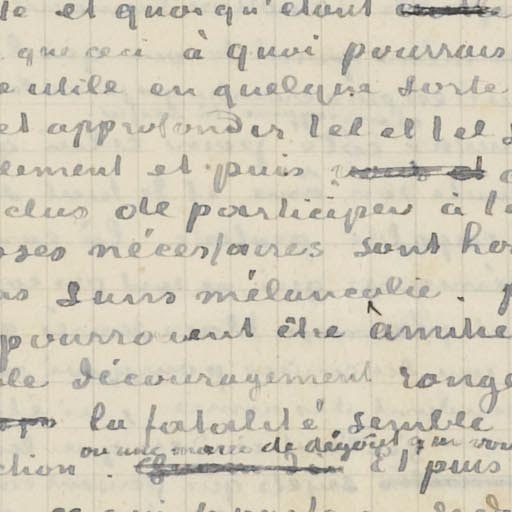 et quoiqu'étant
que ceci à quoi pourrais
utile en quelque sorte
et approfondir tel et tel
ement et puis
clus de participer à
ses nécessaires sont hor
sans mélancolie.
pourraient être amitié
le découragement ronge
la fatalité semble
ou une marée de dégoût qui vou
ction. Et puis